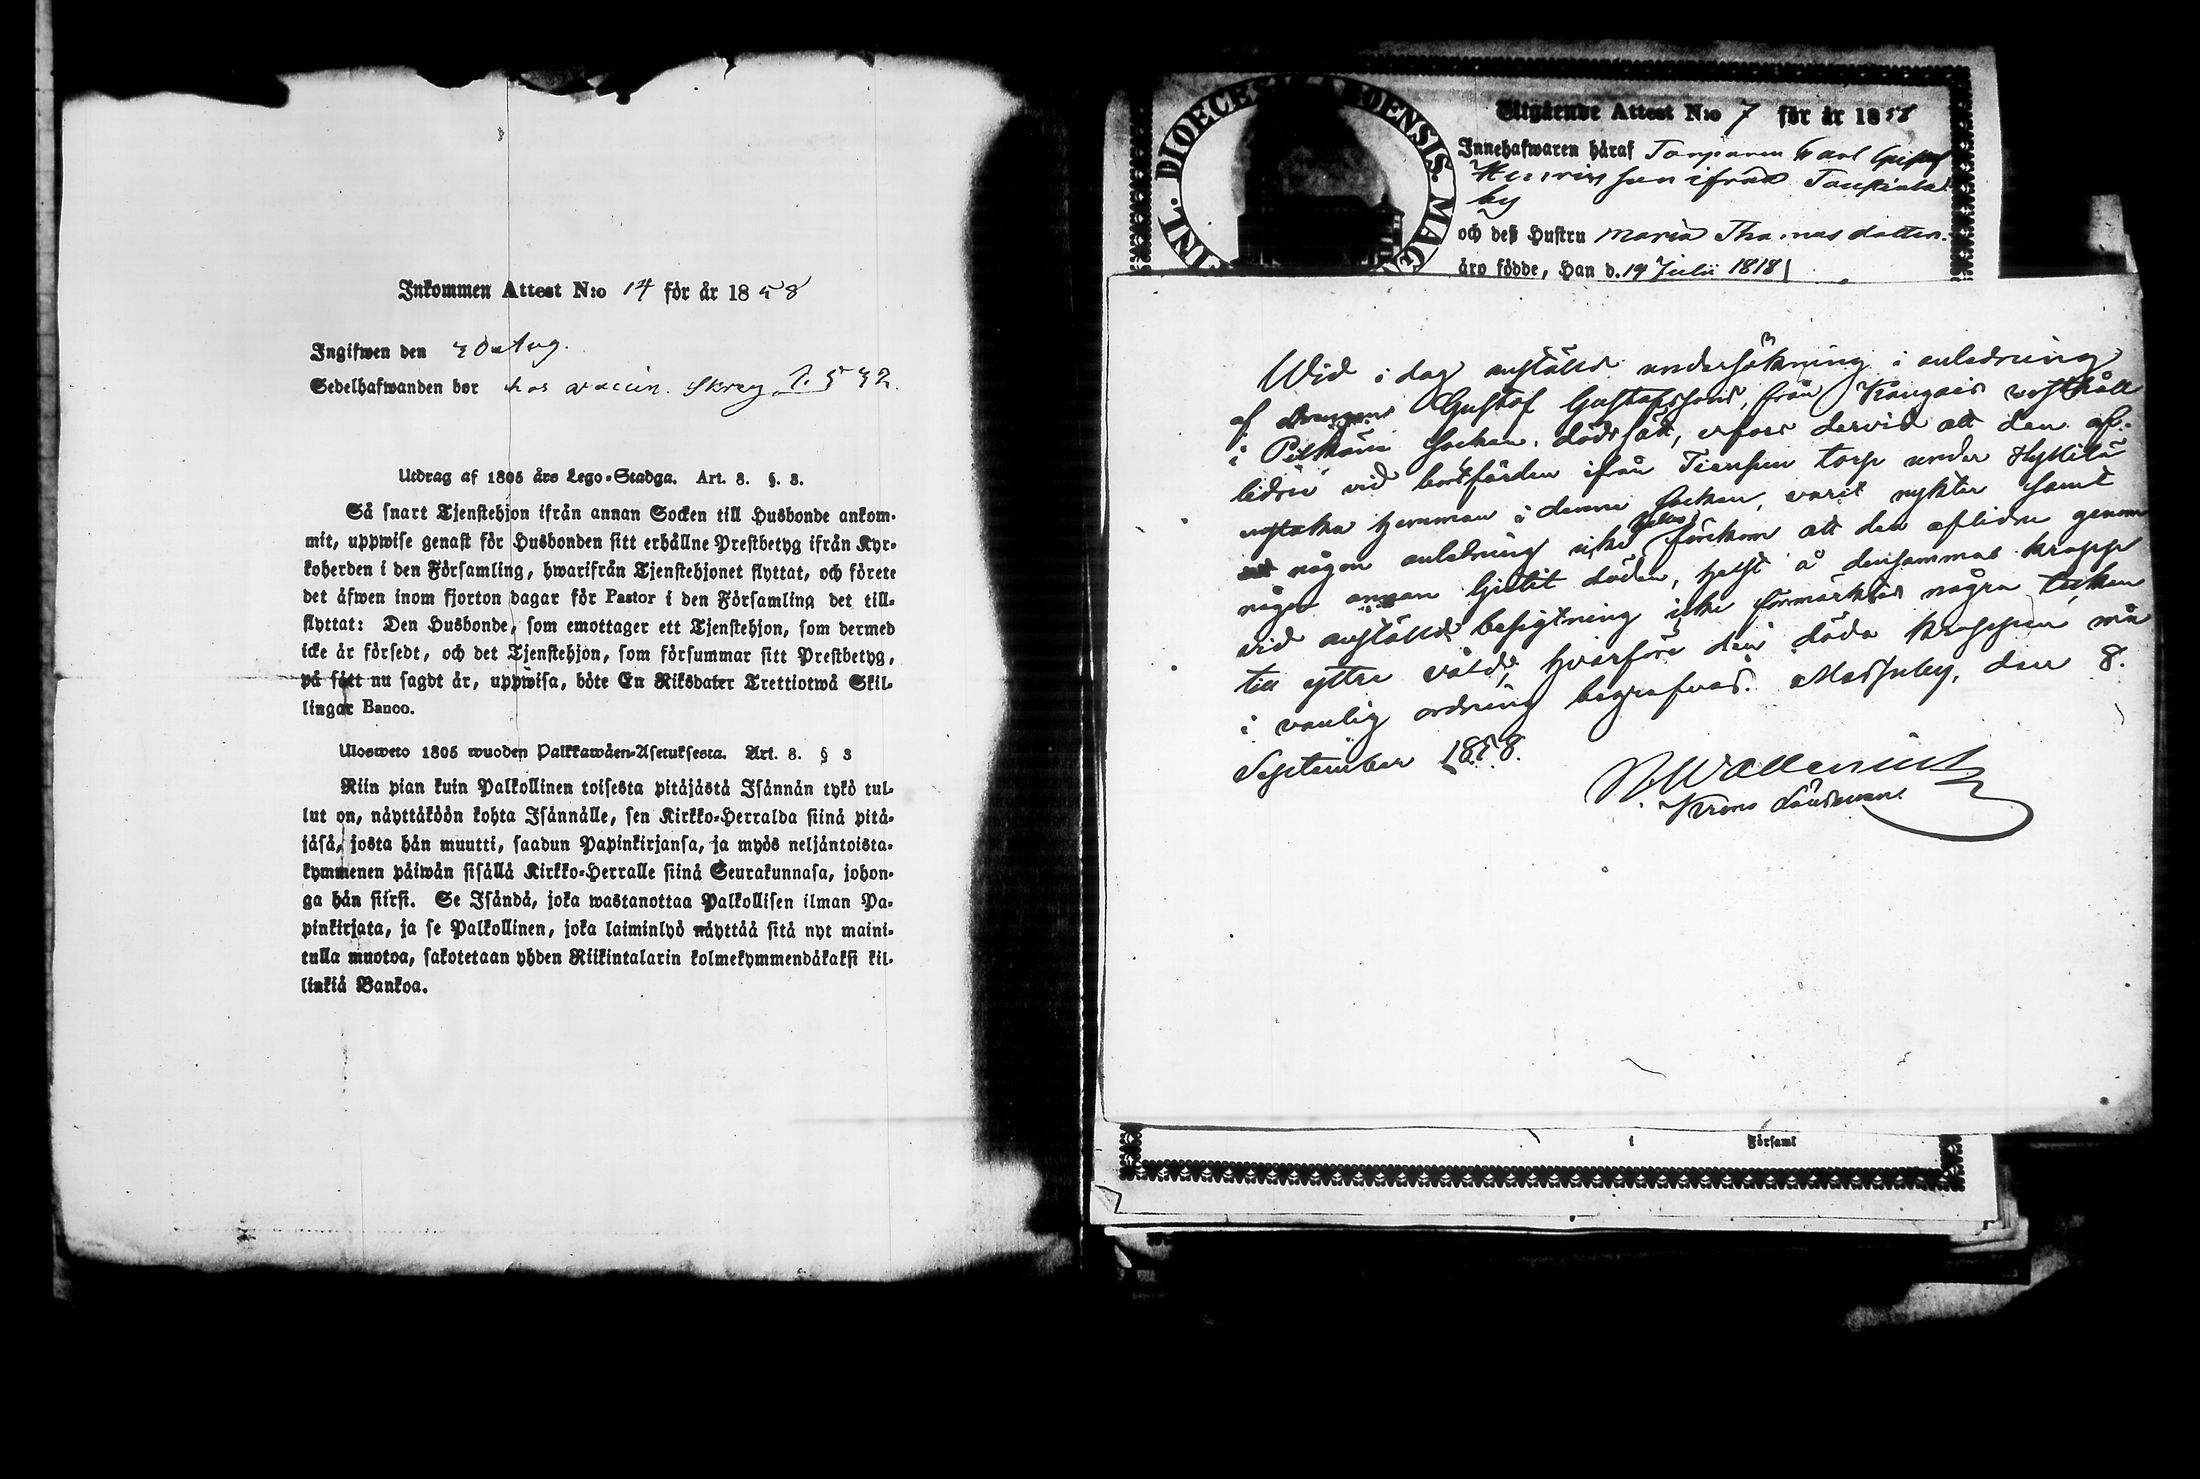 Inkommen Attest N:o 14 för år 1858
Ingifwen den 30 Aug.
Sedelhafwanden bor hos vaccin. Skrey
Utdrag af 1805 års Lego-Stadga. Art. 8. §. 3.
Så snart Tjenstehjon ifrån annan Socken till Husbonde ankom-
mit, uppwise genast för Husbonden sitt erhållne Prestbetyg ifrån Kyr-
koherden i den Församling, hwarifrån Tjenstehjonet flyttat, och förete
det äfwen inom fjorton dagar för Pastor i den Församling det till-
flyttat: Den Husbonde, som emottager ett Tjenstehjon, som dermed
icke är försedt, och det Tjenstehjon, som försummar sitt Prestbetyg,
på sätt nu sagdt är, uppwisa, böte En Riksdaler Trettiotwå Skil-
lingar Banco.
Ulosweto 1805 wuoden Palkkawäen-Asetuksesta. Art. 8. § 3
Niin pian kuin Palkollinen toisesta pitäjästä Isännän tykö tul-
lut on, näyttäköön kohta Isännälle, sen Kirkko-Herralda siinä pitä-
jäsä, josta hän muutti, saadun Papinkirjansa, ja myös neljäntoista-
kymmenen päiwän sisällä Kirkko-Herralle siinä Seurakunnasa, johon-
ga hän siirsi. Se Isändä, joka wastanottaa Palkollisen ilman Pa-
pinkirjata, ja se Palkollinen, joka laiminlyö näyttää sitä nyt maini-
tulla muotoa, sakotetaan yhden Riikintalarin kolmekymmendäkaksi kil-
linkiä Bankoa.
DIOECESIS ABOENSIS. MAG
Utgående Attest N:o 7 för år 1858
Innehafwaren häraf Torparen Carl
Henriksson ifrån
by
och deß Hustru Maria Thomasdotter
äro födde, Han d. 19 Julii 1818
Wid i dag anställd undersökning i anledning
af drengens Gustaf Gustafssons, från Kangais rusthåll
i Pitkäni Socken, dödssätt, erfors dervid att den af-
lidne vid bortfärden ifrån Tiensuu torp under Hyttilä
augments hemman i denne Socken, varit nykter samt
någon anledning icke heller förekom att den aflidne genom
någon annan ljutit döden, helst å densammas kropp
vid anställd besigtning icke förmärktes några tecken
till yttre våld, hvarföre den döda kroppen må
i vanlig ordning begrafvas. Masjuby, den 8.
September 1858.
Wallenius
Krono Länsman.
i Församl